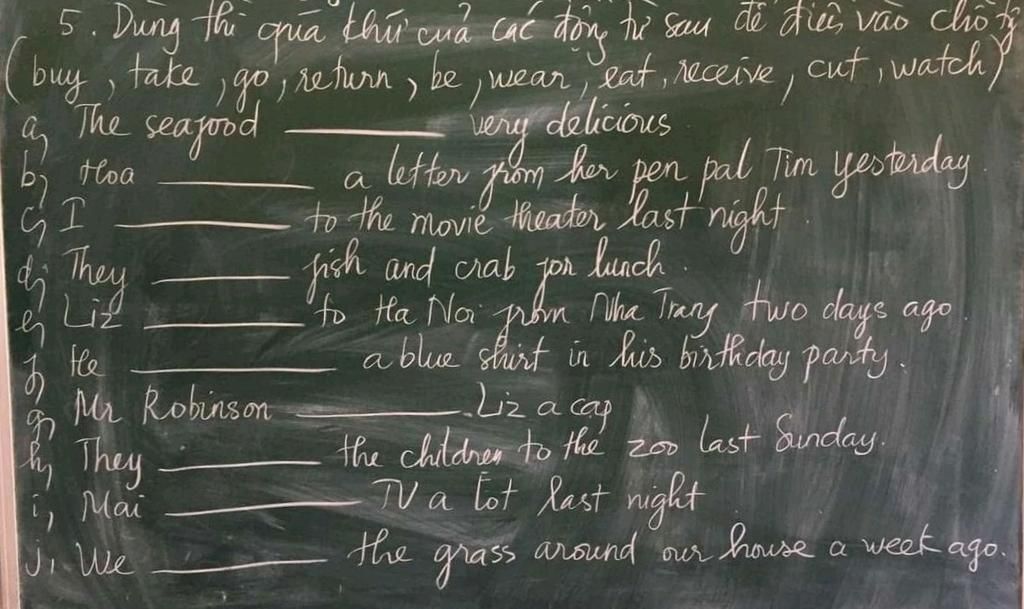 5. Dùng thì quá khứ của các động từ sau để điền vào chỗ
(buy, take, go, return, be, wear, eat, receive, cut, watch)
a, The seafood ______ very delicious
b, Hoa ______ a letter from her pen pal Tim yesterday.
c, I ______ to the movie theater last night.
d, They ______ fish and crab for lunch.
e, Liz ______ to Ha Noi from Nha Trang two days ago.
f, He ______ a blue shirt in his birthday party.
g, Mr Robinson ______ Liz a cap
h, They ______ the children to the zoo last Sunday.
i, Mai ______ TV a lot last night
j, We ______ the grass around our house a week ago.